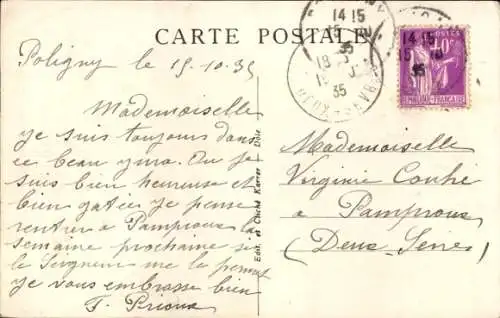 CARTE POSTALE
Poligny le 15.10.35
Mademoiselle
Je suis toujours dans
ce beau Jura. Ou je
suis bien heureuse et
bien gatée je pense
rentrer a Pamproux la
semaine prochaine si
le Seigneur me le permet
Je vous embrasse bien
F. Prioux
Edit. et Cliché Karrer - Dôle
14 15
15 - 10
35
POSTES
40c
REPUBLIQUE FRANÇAISE
Mademoiselle
Virginie
a Pamproux
(Deux-Sèvres)